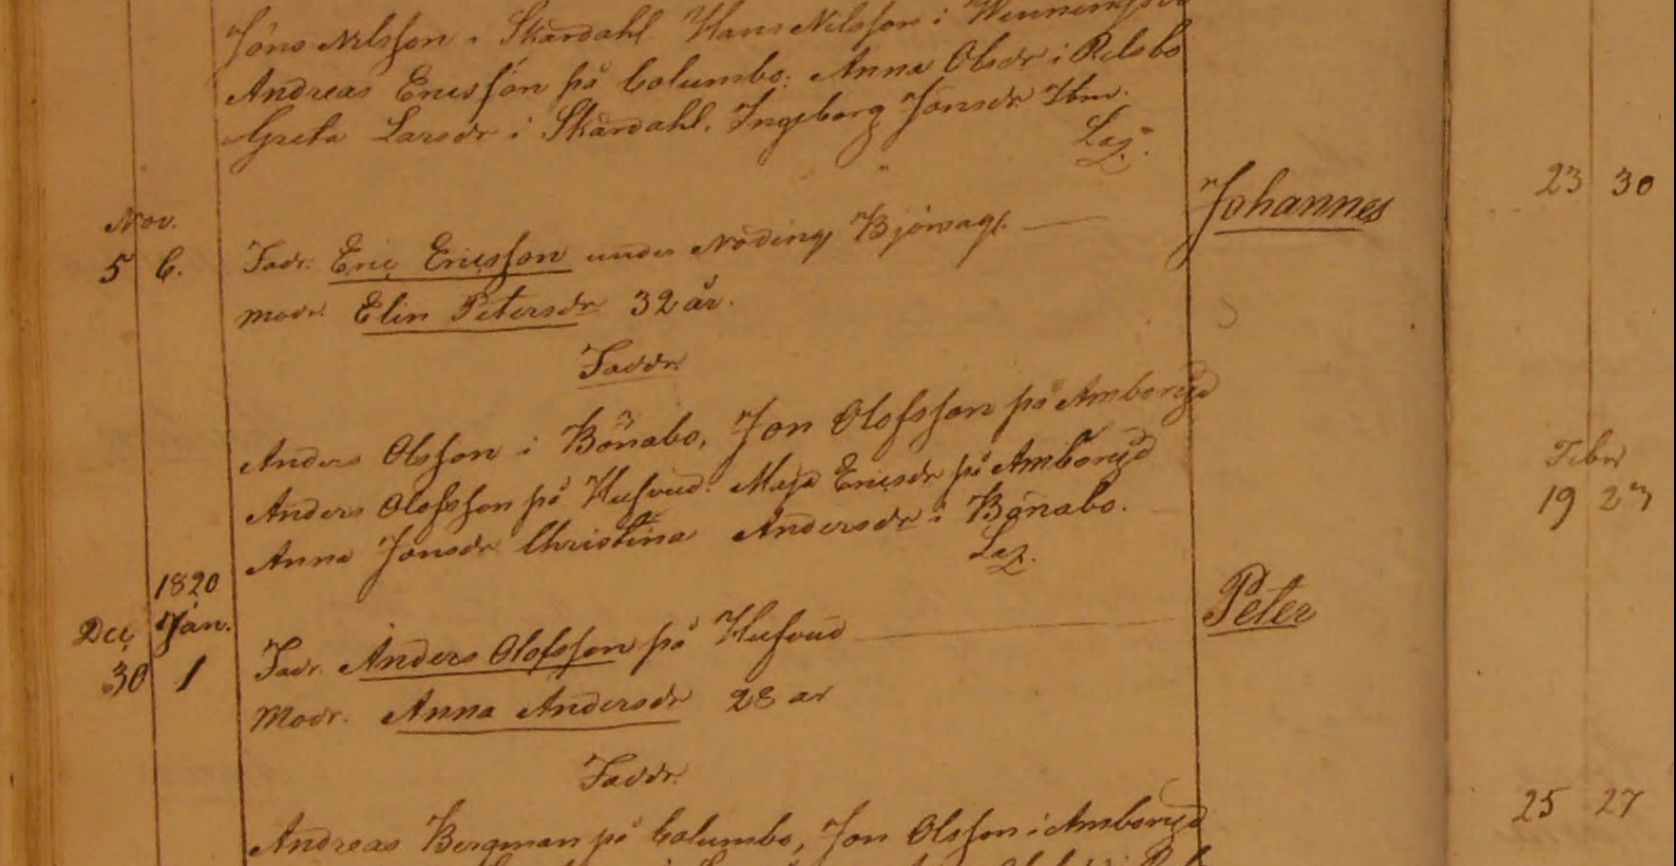 Jöns Nilsson i Skärdahl Hans Nilsson i
Andreas Ericsson på Columbo: Anna Olsdr i Relsbo
Greta Larsdr i Skärdahl. Ingeborg Jonsdr Ibm.
Laz.
Johannes
23 30
Nov.
5 6. Fadr. Eric Ericsson under Nöding
modr. Elin Petersdr 32 år.
Faddr
Anders Olsson i Bönabo, Jon Olofsson på Amboryd
Anders Olofsson på Hufvud. Maja Ericsdr på Amboryd
Anna Jonsdr Christina Andersdr i Bönabo.
Laz.
Febr
19 27
1820
Dec Jan.
30 1 Fadr. Anders Olofsson på Hufvud
Peter
Modr. Anna Andersdr 28 år
Faddr.
Andreas Bergman på Columbo, Jon Olsson i Amboryd
25 27